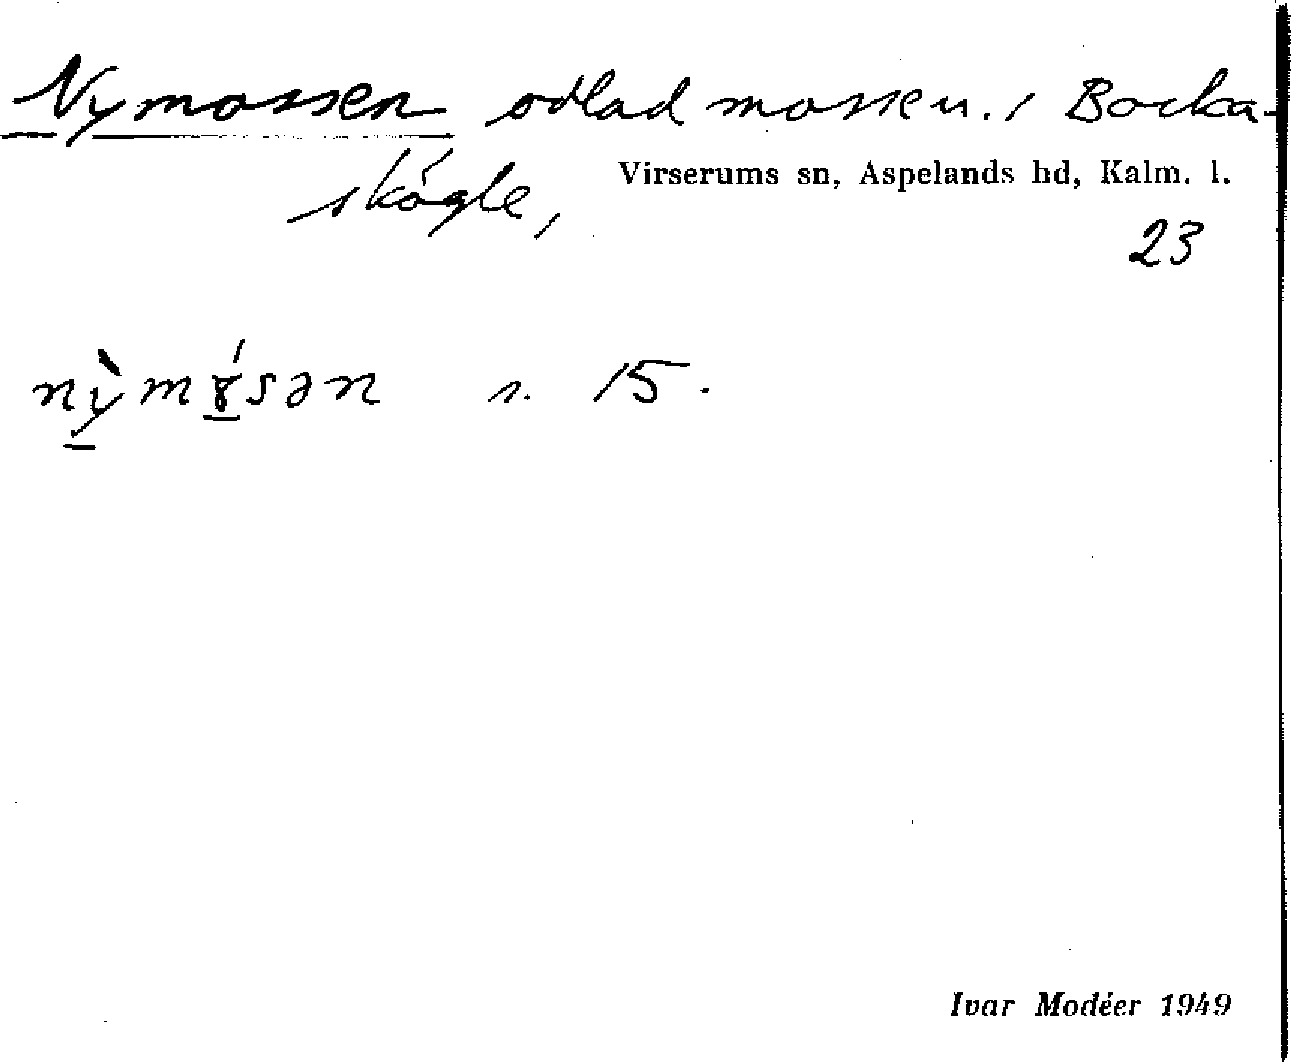 Nymossen odlad mosse u. / Bocka-
skögle,
Virserums sn, Aspelands hd, Kalm. l.
23
nỳ̱mɤ̱́sən s. 15.
Ivar Modéer 1949